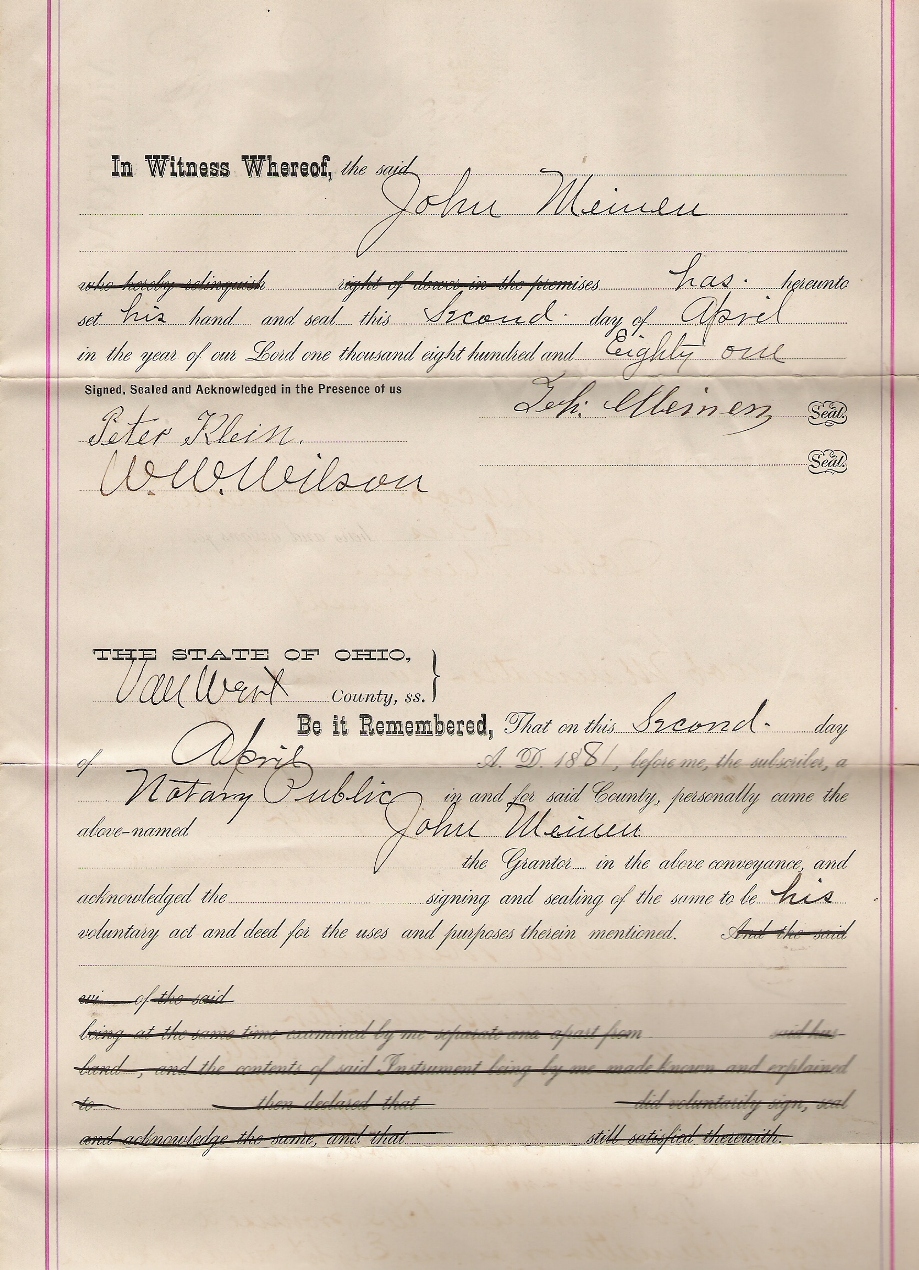 In Witness Whereof, the said
John Meinen
who hereby relinquish right of dower in the premises has. hereunto
set his hand and seal this Second. day of April
in the year of our Lord one thousand eight hundred and Eighty one
Signed, Sealed and Acknowledged in the Presence of us
Joh. Meinen Seal.
Peter Klein.
Seal.
W. W. Wilson
THE STATE OF OHIO,
Van Wert County, ss. }
Be it Remembered, That on this Second. day
of April A. D. 1881, before me, the subscriber, a
Notary Public in and for said County, personally came the
above-named John Meinen
the Grantor in the above conveyance, and
acknowledged the signing and sealing of the same to be his
voluntary act and deed for the uses and purposes therein mentioned. And the said
wi of the said
being at the same time examined by me separate and apart from said hus
band, and the contents of said Instrument being by me made known and explained
to then declared that did voluntarily sign, seal
and acknowledge the same, and that still satisfied therewith.